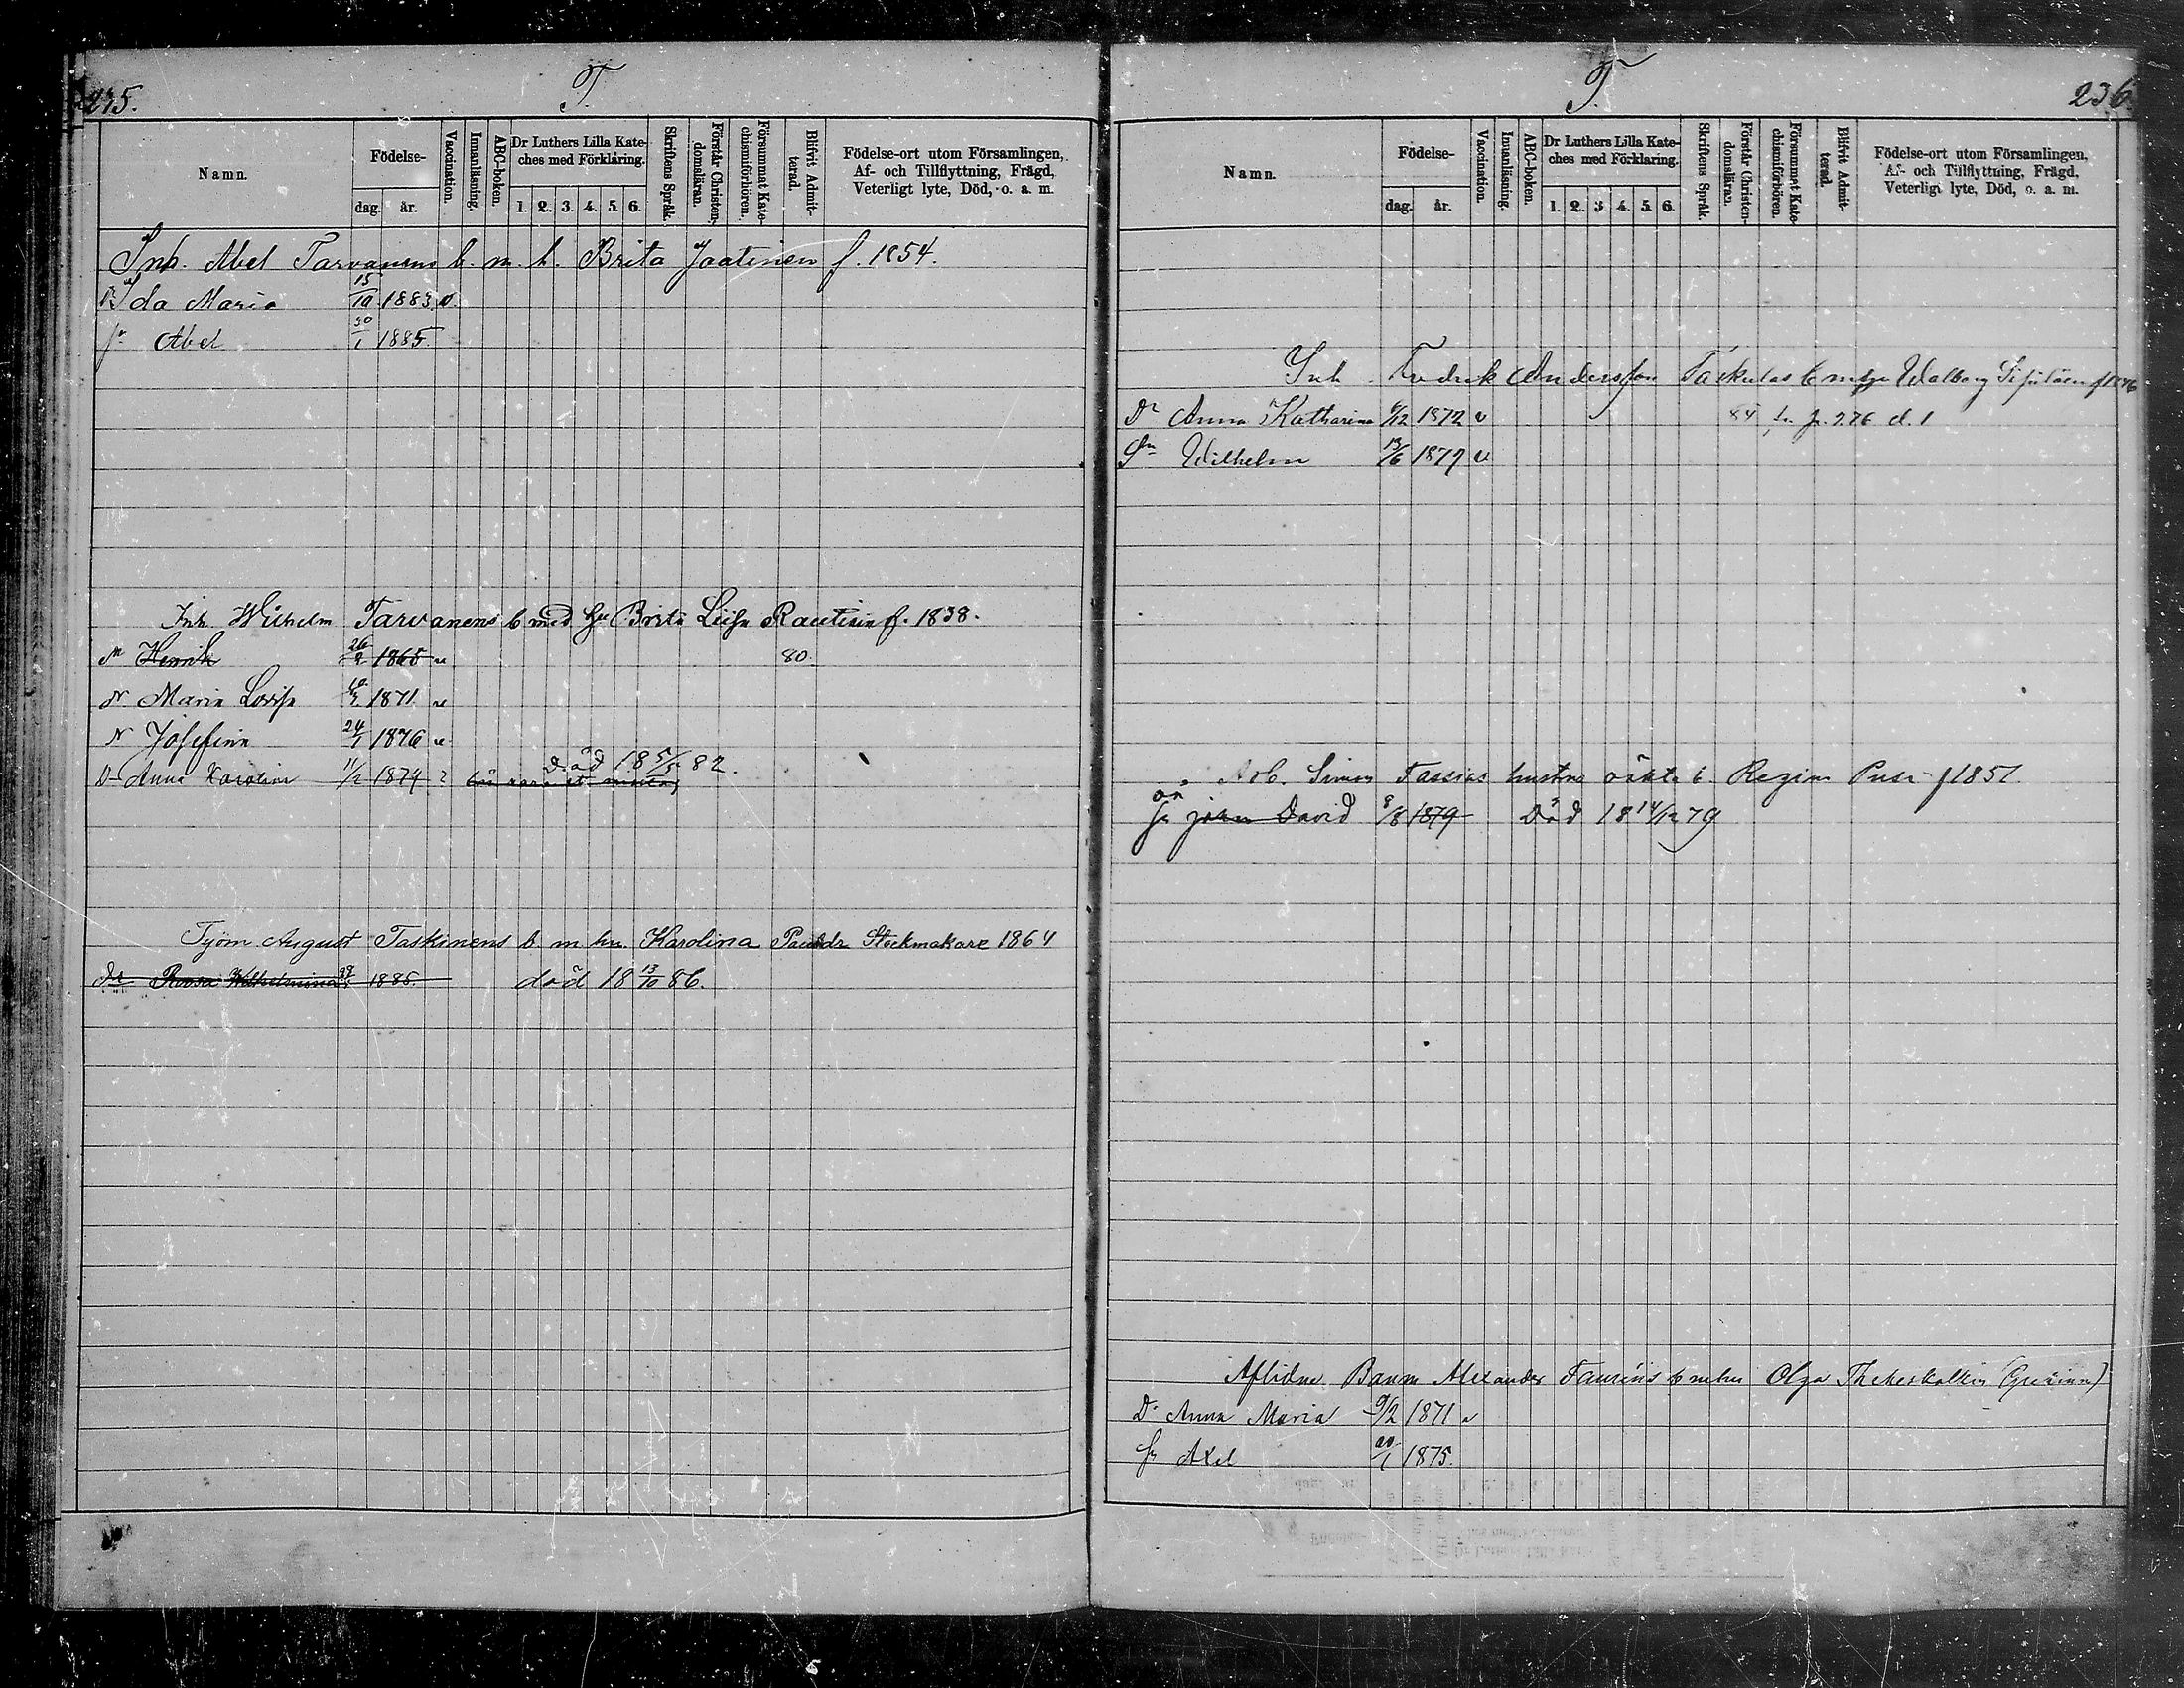 235.
T.
Namn.
Födelse-
dag. år.
Vaccination.
Innanläsning.
ABC-boken.
Dr Luthers Lilla Kate-
ches med Förklaring.
1. 2. 3. 4. 5. 6.
Skriftens Språk.
Förstår Christen-
domsläran.
Försummat Kate-
chismiförhören.
Blifvit Admit-
terad.
Födelse-ort utom Församlingen,
Af- och Tillflyttning, Frägd,
Veterligt lyte, Död, o. a. m.
Inh. Abel Tarvanens b. m. h. Brita Jaatinen f. 1854.
Dr Ida Maria 15/10 1883 v.
Sr Abel 30/1 1885.
Inh. Wilhelm Tarvanens b med hu Brita Liisa Rautiain f. 1838.
Henrik 26/2 1865 v 80.
Dr Maria Lovisa 1871 v
Dr Josefina 24/1 1876 v
Död 18 5/5 82.
Dr Anna Karolina 11/2 1879
Tjöm. August Taskinens b m hu. Karolina Stockmakare 1864
Dr Roosa Wilhelmina 1885. död 18 13/10 86.
T.
236.
Namn.
Födelse-
dag. år.
Vaccination.
Innanläsning.
ABC-boken.
Dr Luthers Lilla Kate-
ches med Förklaring.
1. 2. 3. 4. 5. 6.
Skriftens Språk.
Förstår Christen-
domsläran.
Försummat Kate-
chismiförhören.
Blifvit Admit-
terad.
Födelse-ort utom Församlingen,
Af- och Tillflyttning, Frägd,
Veterligt lyte, Död, o. a. m.
Inh. Fredrik Andersson Taskulas b m Walborg
Dr Anna Katharina 6/12 1872 v 84 p. 276 d. 1
Sn Wilhelm 13/6 1879 v
Arb. Simon Tassias hustrus oäkta b. Regina Pusa f 1851
oä
Sn David 8/8 1879 Död 18 14/12 79
Aflidne Banm Alexander Taurēns b m hu Olga
Dr Anna Maria 9/2 1871 v
Sn Axel 20/1 1875.